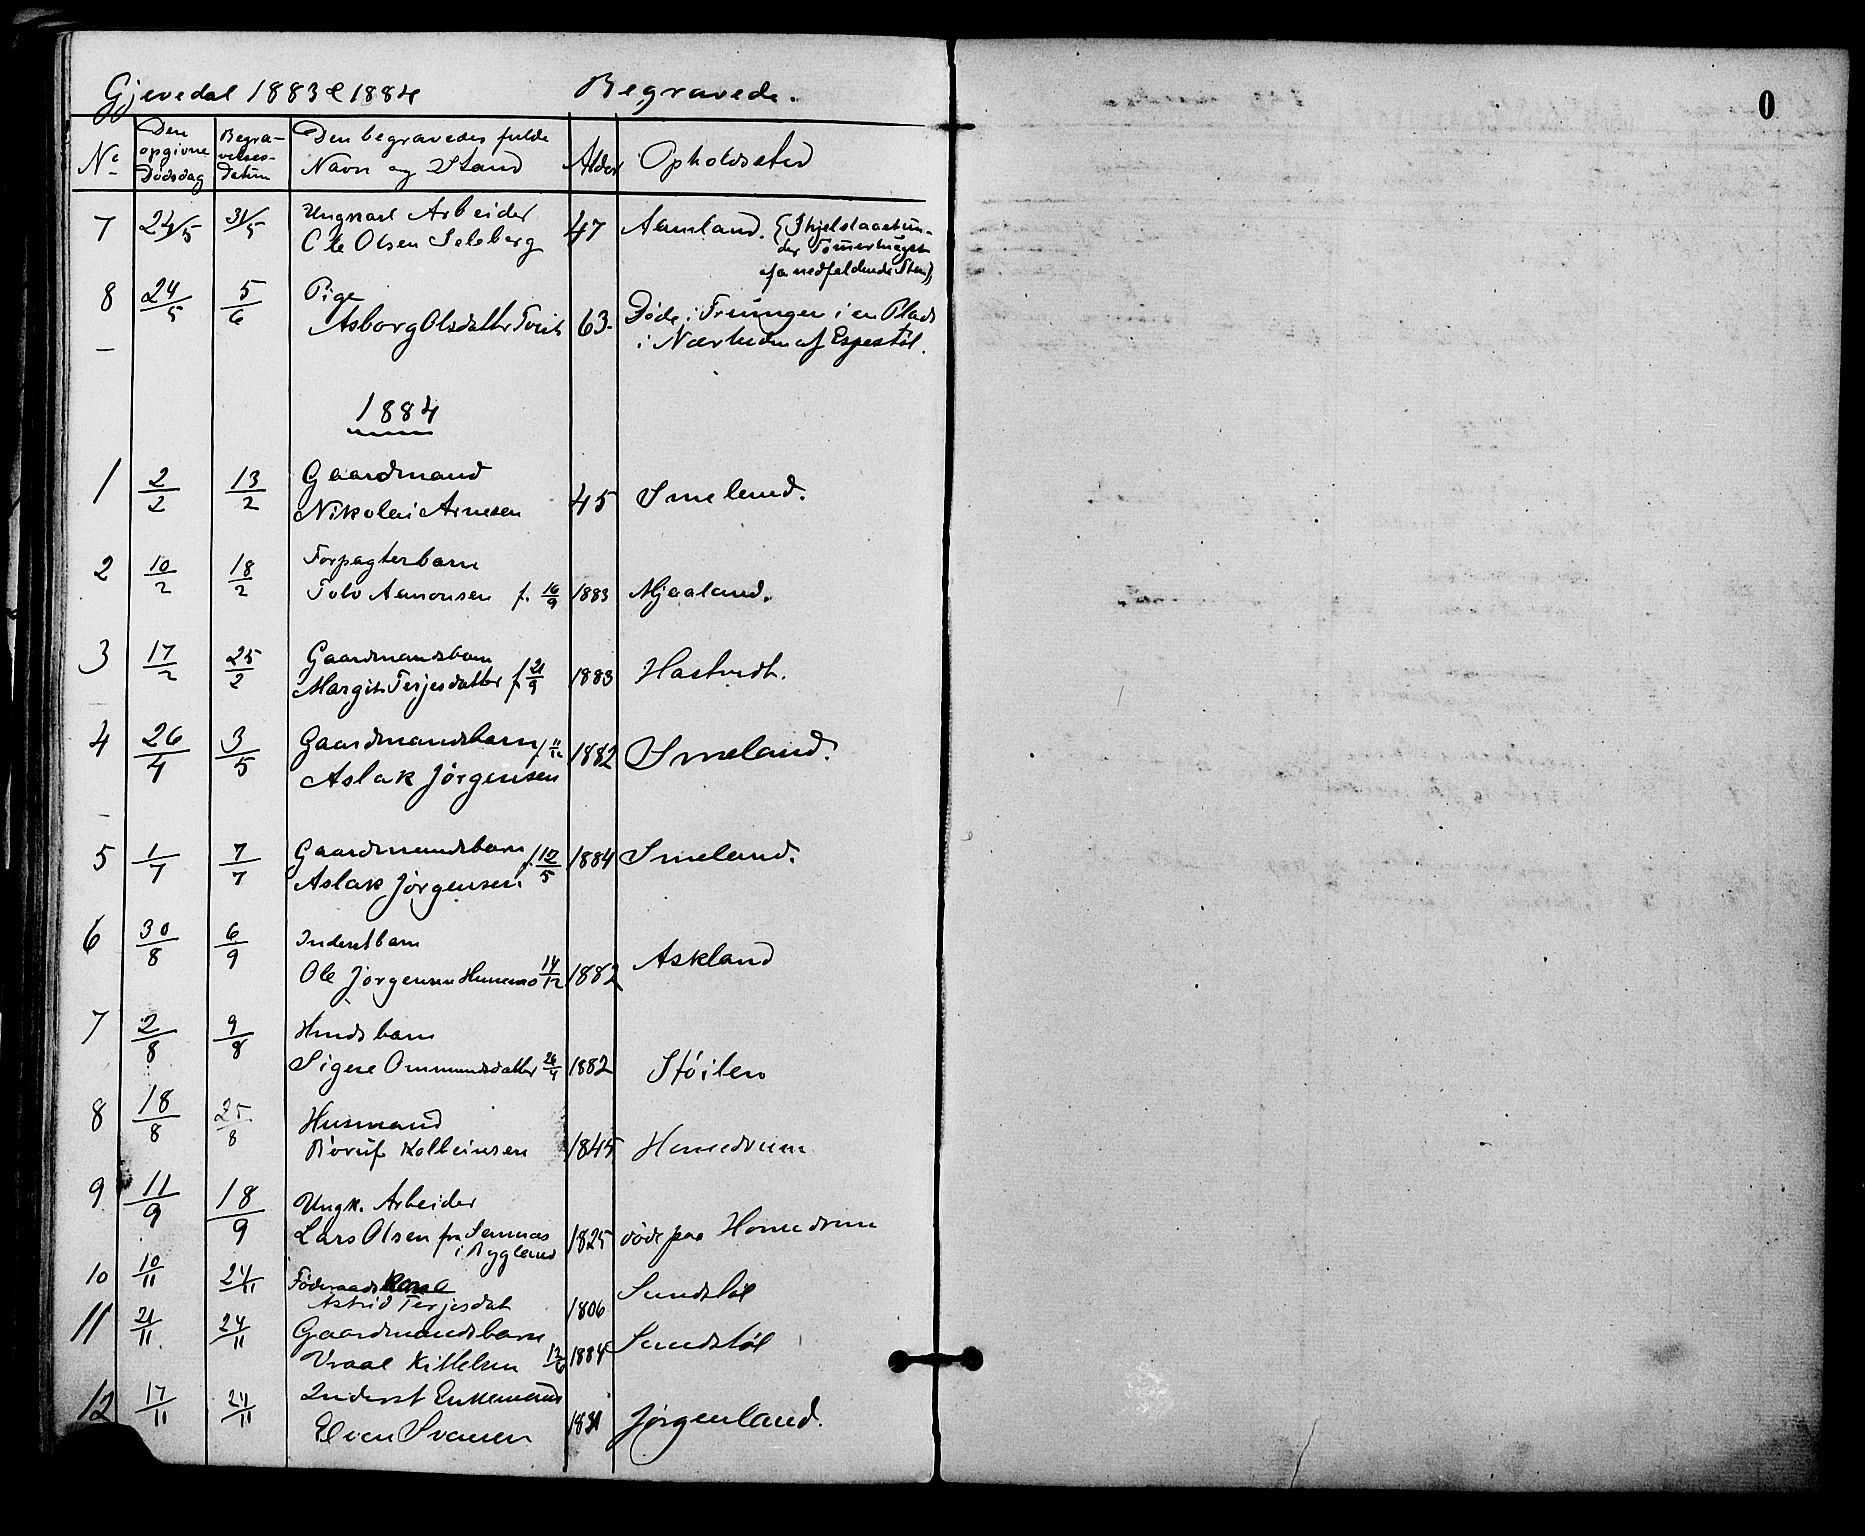 Gjevedal 1883 & 1884 Begravede.
No Den opgivne Dødsdag Begravelses-Datum Den begravedes fulde Navn og Stand Alder Opholdssted
7 24/5 31/5 Ungkarl Arbeider 47 Aamland. (Ihjelslaaet un-
Ole Olsen Seleberg der
af en nedfaldende Sten),
8 24/5 5/6 Pige
Asborg Olsdatter Tveit 63. Døde i Treungen i en Plads
i Nærheden af Espestøl.
1884
1 2/2 13/2 Gaardmand
Nikolai Arnesen 45 Smeland.
2 10/2 18/2 Forpagterbarn
Tolv Aamonsen f. 16/9 1883 Mjaaland.
3 17/2 25/2 Gaardmandsbarn
Margit Terjesdatter f. 21/9 1883 Hastvedt.
4 26/4 3/5 Gaardmandsbarn f. 11/12 1882 Smeland.
Aslak Jørgensen
5 1/7 7/7 Gaardmandsbarn f. 12/5 1884 Smeland.
Aslak Jørgensen
6 30/8 6/9 Inderstbarn
Ole Jørgensen 14/12 1882 Askland
7 2/8 9/8 Husdsbarn
Signe Ommundsdatter 26/4 1882 Støilen
8 18/8 25/8 Husmand
Roruf Kolbeinsen 1845 Homedrum
9 11/9 18/9 Ungk. Arbeider
Lars Olsen fra Sannæs 1825 døde paa Homedrum
i Bygland
10 10/11 24/11 Føderaadskone Sundstøl
Astrid Terjesdat 1806
11 21/11 24/11 Gaardmandsbarn Sundstøl
Vraal Kittelsen 12/6 1884
12 17/11 24/11 Inderst Enkemand
Even Svensen 1831 Jørgenland.
0